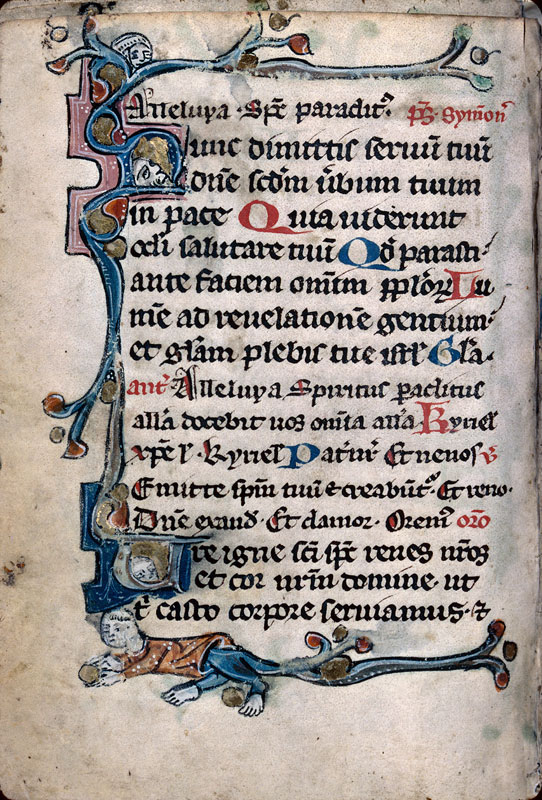 Alleluya. Spc paraclit9. ps. Symeon
Nunc dimittis seruū tuū
dn̄e scd̄m ūbum tuum
in pace Quia uiderunt
ocl̄i salutare tuū Qd̄ parasti
ante faciem omniū ppl̄oꝝ Lu
mē ad reuelationē gentium.
et gl̄am plebis tue isrl̄ Gl̄a.
ant̄. Alleluya Spiritus paclitus
all̄a docebit uos om̄ia all̄a Kyriel
xp̄el. Kyriel Pat̄ nr̄ Et ne nos ꝟ
Emitte sp̄m tuū & creabūt9. Et reno.
Dn̄e exaud. Et clamor. Orem9 oro
Ure igne sc̄i sp̄c renes nr̄os
et cor nr̄m domine. ut
t̄ casto corpore seruiamus. &